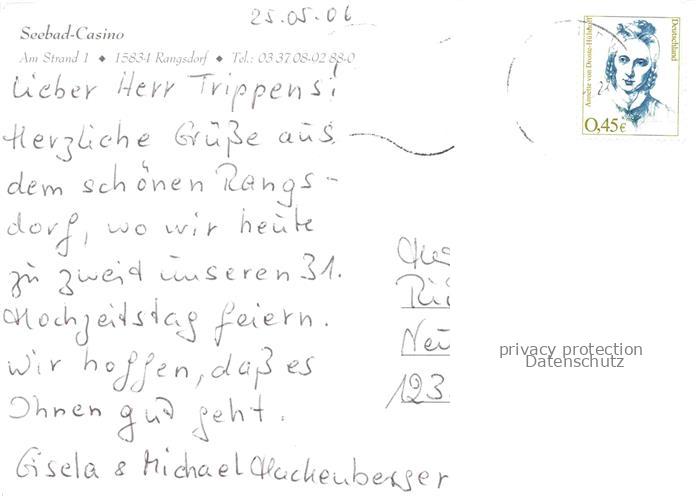 25.05.06
Seebad-Casino
Am Strand 1 ◆ 15834 Rangsdorf ◆ Tel.: 03 37 08-92 88-0
Lieber Herr Trippens!
Herzliche Grüße aus
dem schönen Rangs-
dorf, wo wir heute
zu zweit unseren 31.
Hochzeitstag feiern.
Wir hoffen, daß es
Ihnen gut geht.
Gisela & Michael Hackenberger
Annette von Droste-Hülshoff
Deutschland
0,45€
Neu
123
privacy protection
Datenschutz